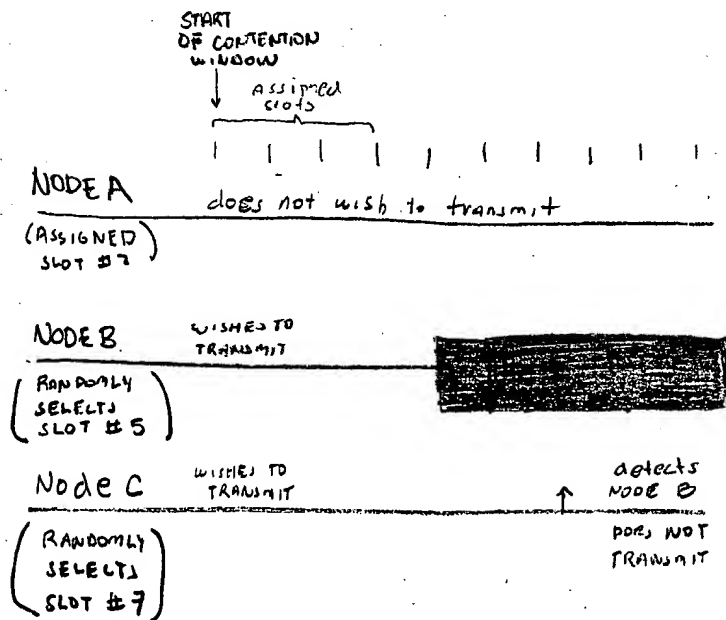 START
OF CONTENTION
WINDOW
Assigned
slots
NODE A
does not wish to transmit
(ASSIGNED
SLOT #2)
NODE B
WISHES TO
TRANSMIT
(RANDOMLY
SELECTS
SLOT #5)
Node C
WISHES TO
TRANSMIT
detects
NODE B
DOES NOT
TRANSMIT
(RANDOMLY
SELECTS
SLOT #7)